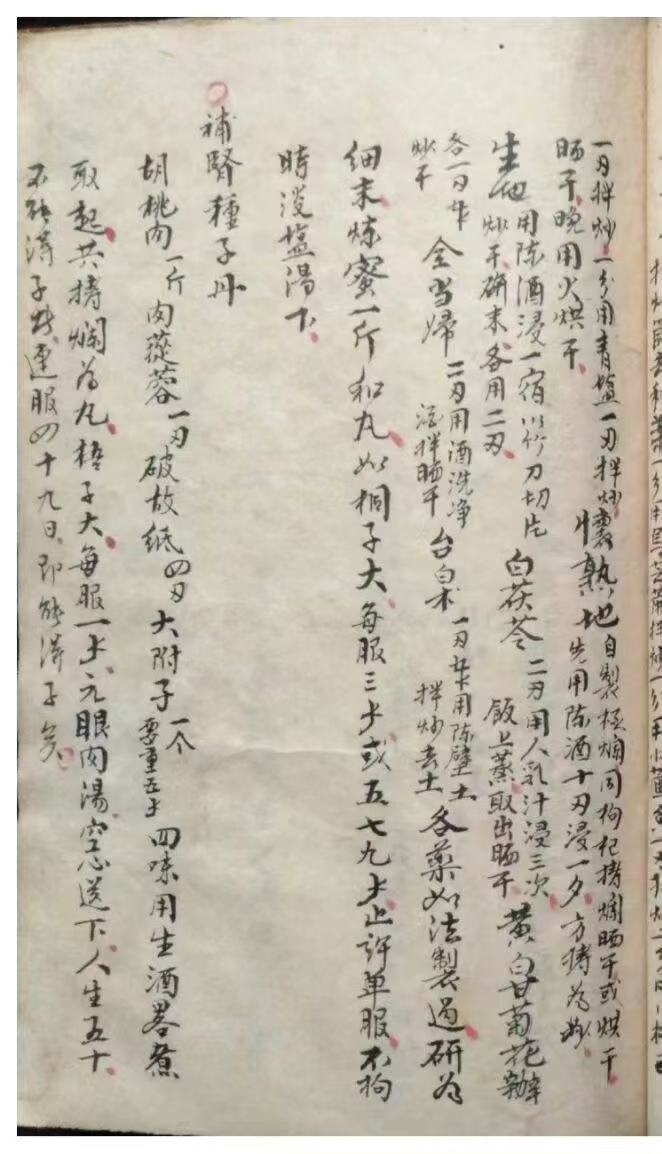 一刃拌炒一分用青塩一刃拌炒懷熟地自製極爛同枸杞搗爛晒干或烘干
晒干晚用火烘干 先用陈酒十刃浸一夕方搗為妙
生地用陈酒浸一宿以竹刀切片白茯苓二刃用人乳汁浸三次黄白甘菊花辦
炒干研末各用二刃 飯上蒸取出晒干
各一刃半全当歸二刃用酒洗净台白术一刃半用陈壁土各藥如法製過研為
炒干 酒拌晒干 拌炒去土
细末炼蜜一斤和丸如桐子大每服三㐅或五七九㐅止許单服不拘
時淡塩湯下
補腎種子丹
胡桃肉一斤肉蓯蓉一刃破故纸四刃大附子一个要重五㐅四味用生酒畧煮
取起共搗爛為丸梧子大每服一㐅元眼肉湯空心送下人生五十
不能得子者連服四十九日即能得子矣